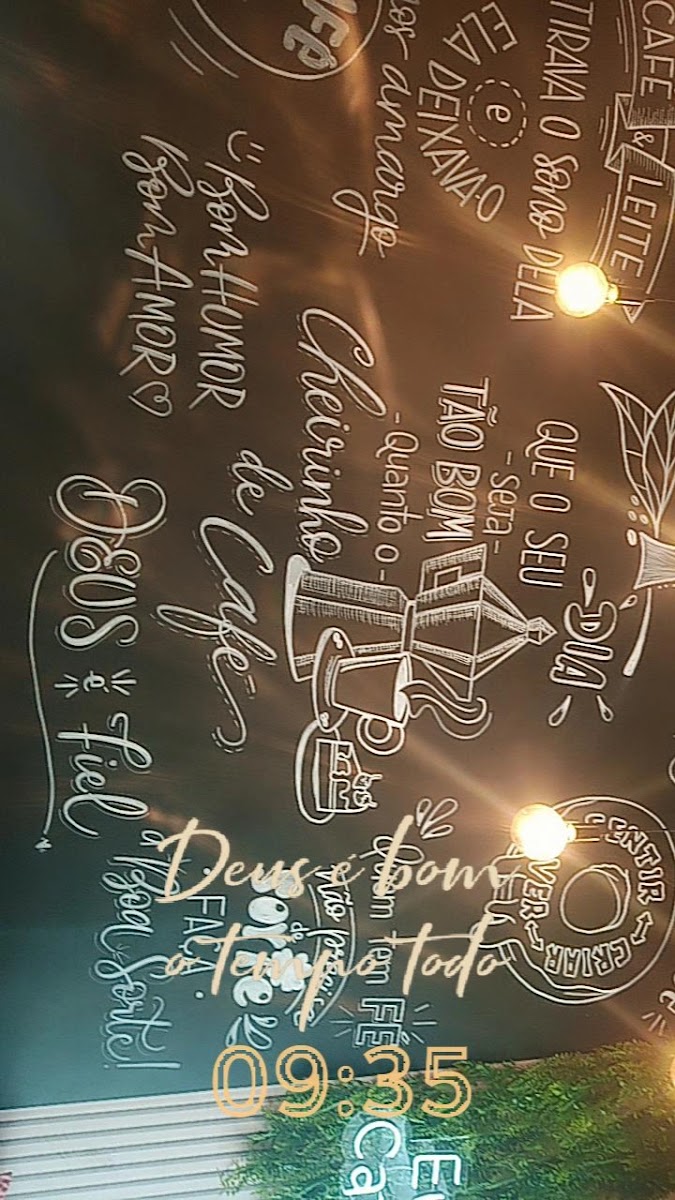 CAFÉ & LEITE
TIRAVA O sono DELA
ELA
e
DEIXAVA
amargo
Bom HUMOR
Bom AMOR
QUE O SEU
DIA
- seja -
TÃO BOM
- Quanto o -
Cheirinho
de Café
Deus é fiel
SENTIR
CRIAR
VER
Quem tem FÉ
não precisa
de
Sorte
FAÇA
a Boa Sorte!
Deus é bom
o tempo todo
09:35